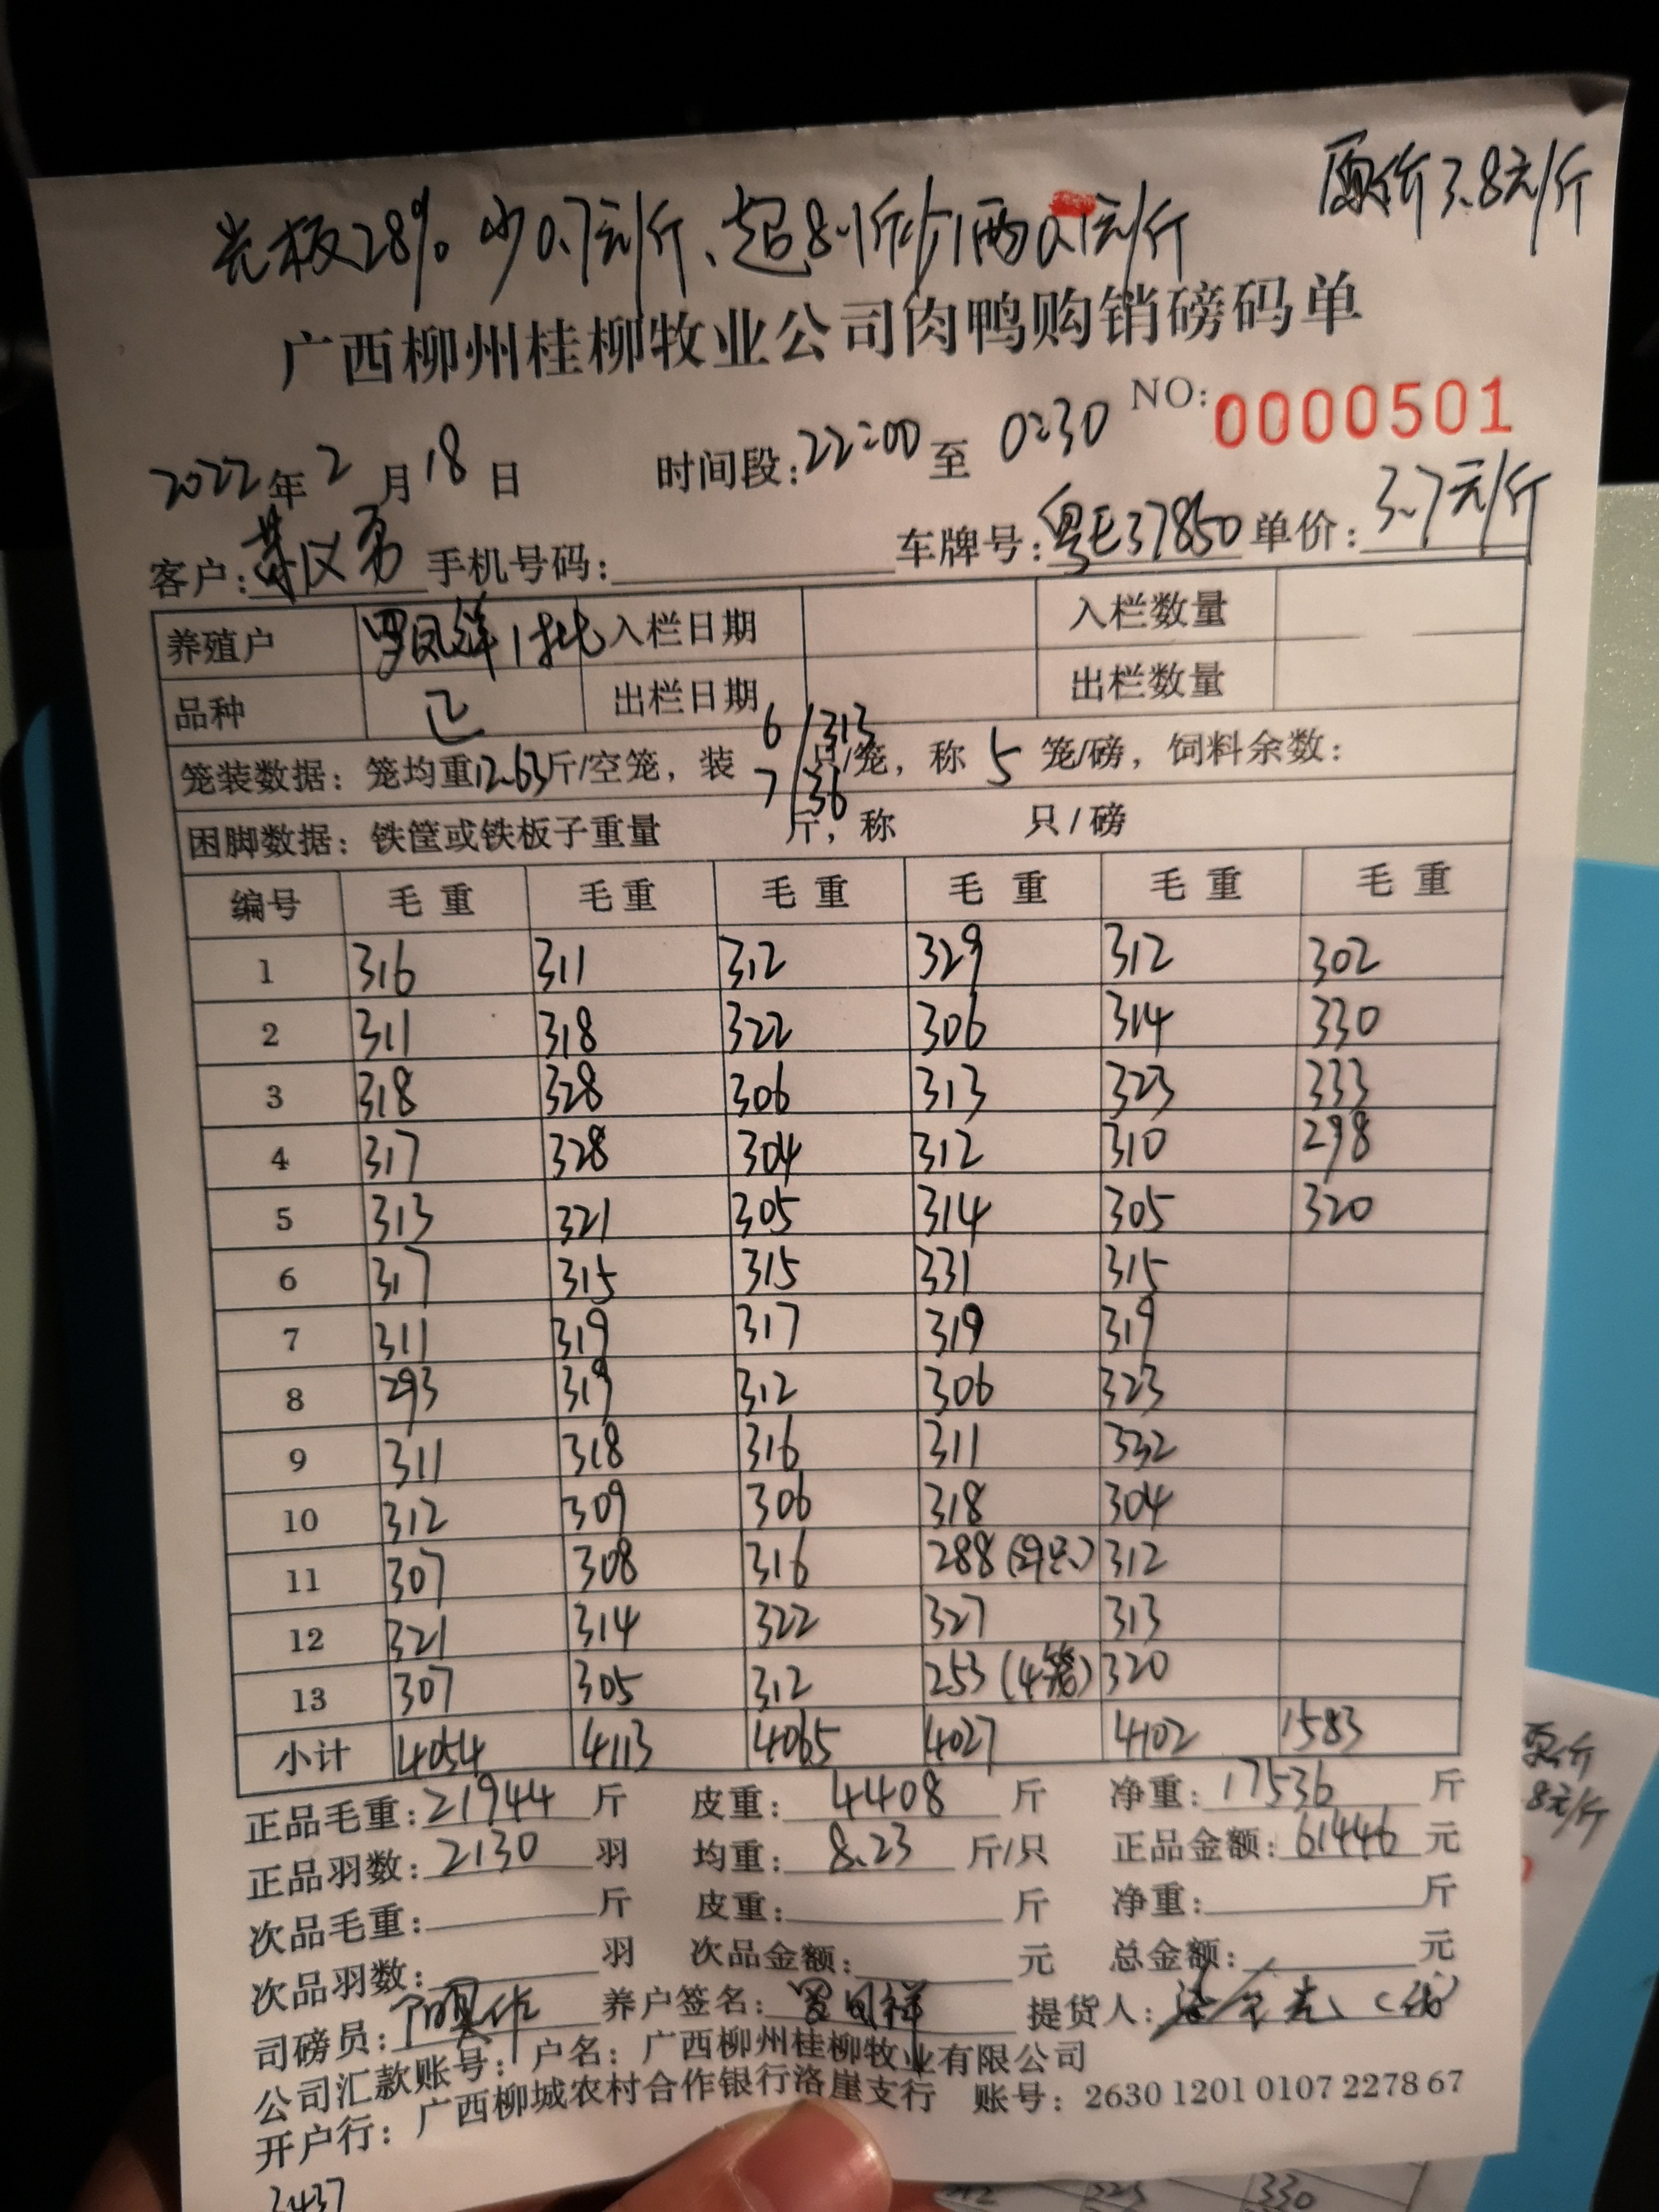 原价3.8元/斤
光板28% 少0.7元/斤、超8.1斤少1两0.1元/斤
广西柳州桂柳牧业公司肉鸭购销磅码单
NO: 0000501
2022年2月18日 时间段:22:00至0:30
客户: 手机号码: 车牌号:粤E37850 单价:3.7元/斤
养殖户 罗凤祥1批 入栏日期 入栏数量
品种 出栏日期 出栏数量
笼装数据: 笼均重12.63斤/空笼, 装 6/313 7/36 只/笼, 称 5 笼/磅, 饲料余数:
困脚数据: 铁筐或铁板子重量 斤, 称 只/磅
编号 毛重 毛重 毛重 毛重 毛重 毛重
1 316 311 312 329 312 302
2 311 318 322 306 314 330
3 318 328 306 313 323 333
4 317 328 304 312 310 298
5 313 321 305 314 305 320
6 317 315 315 331 315
7 311 319 317 319 319
8 293 319 312 306 323
9 311 318 316 311 332
10 312 309 306 318 304
11 307 308 316 288 312
12 321 314 322 327 313
13 307 305 312 253(4笼) 320
小计 4054 4113 4065 4027 4102 1583
正品毛重:21944斤 皮重:4408斤 净重:17536斤
正品羽数:2130羽 均重:8.23斤/只 正品金额:61446元
次品毛重: 斤 皮重: 斤 净重: 斤
次品羽数: 羽 次品金额: 元 总金额: 元
司磅员: 养户签名:罗凤祥 提货人:
公司汇款账号: 户名: 广西柳州桂柳牧业有限公司
开户行: 广西柳城农村合作银行洛崖支行 账号: 2630 1201 0107 2278 67
原价
8元/斤
323 330